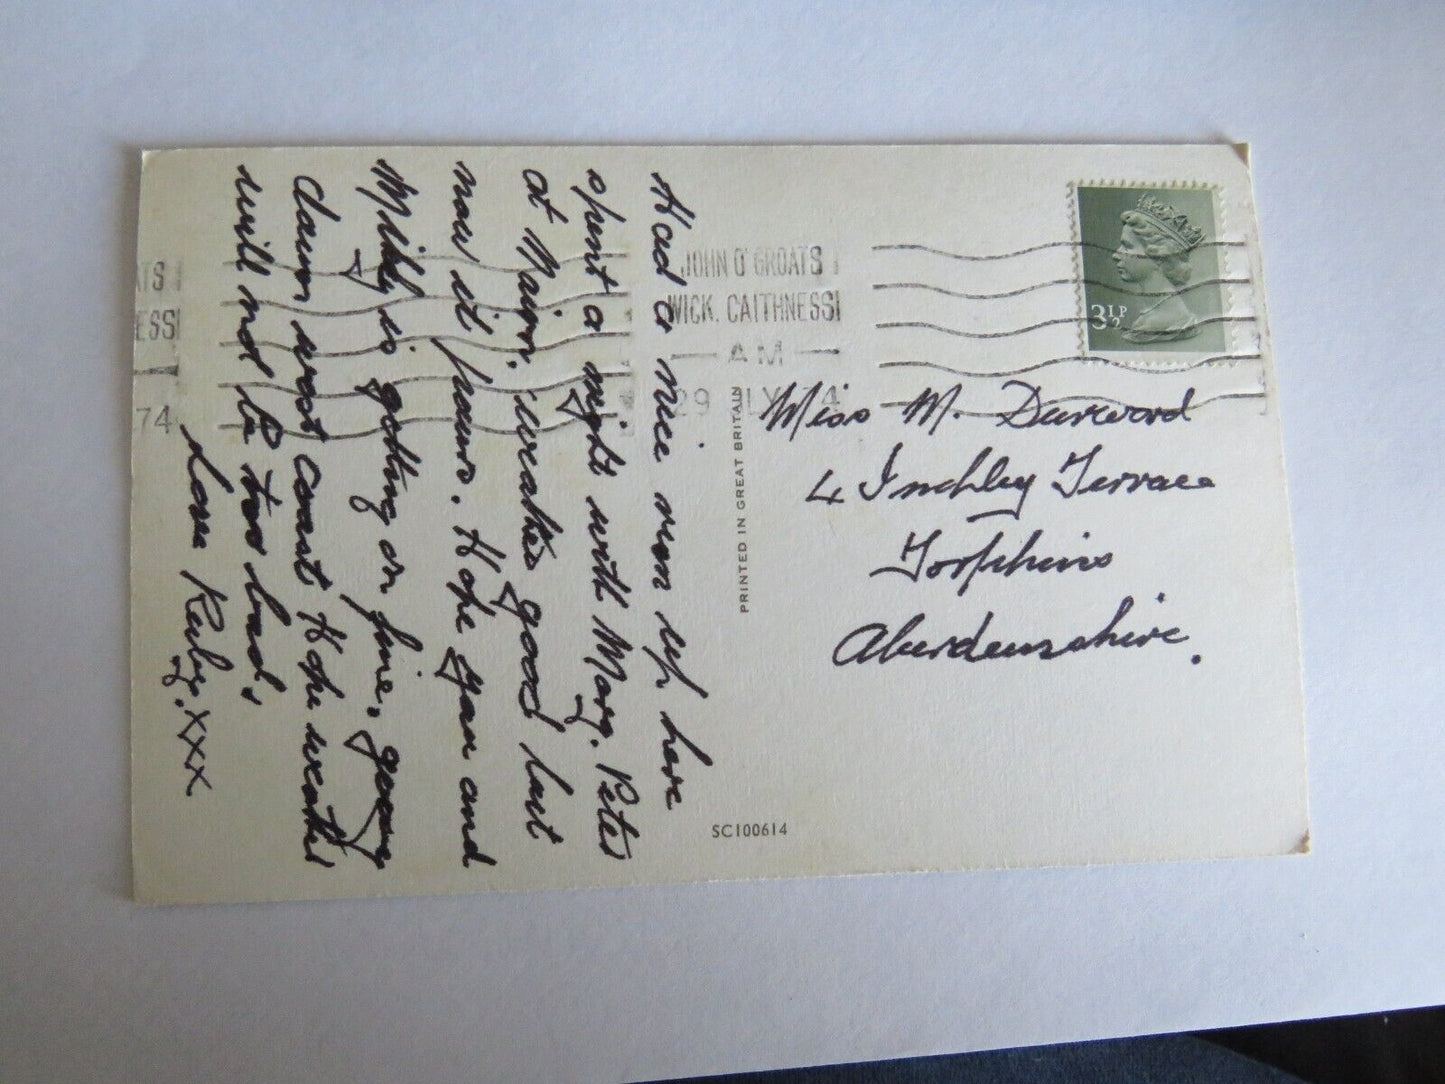 Had a nice run up, have
spent a night with Mary. Peter
at Nairn. weather good but
now it pours. Hope you and
Milky is getting on fine. going
down west coast Hope weather
will not be too bad.
Love Ruby. xxx
JOHN O'GROATS
WICK, CAITHNESS
AM
29 JLY 74
ATS
ESS
74
3½P
Miss M. Durward
4 Inchley Terrace
Torphins
Aberdeenshire.
PRINTED IN GREAT BRITAIN
SC100614